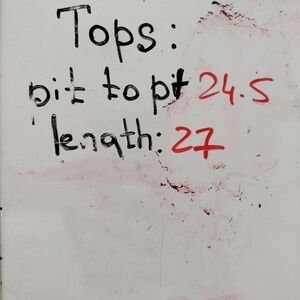 Tops:
pit to pt 24.5
length: 27